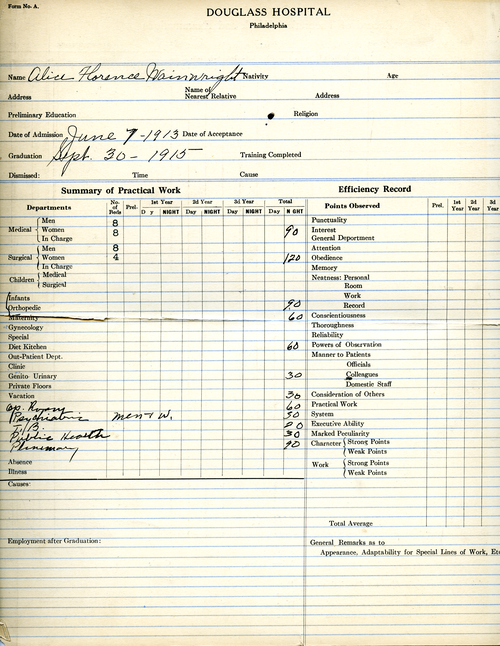 Form No. A.
DOUGLASS HOSPITAL
Philadelphia
Name Alice Florence Wainwright Nativity Age
Address Name of Nearest Relative Address
Preliminary Education Religion
Date of Admission June 7-1913 Date of Acceptance
Graduation Sept. 30 - 1915 Training Completed
Dismissed: Time Cause
Summary of Practical Work
Departments No. of Beds Prel. 1st Year 2d Year 3d Year Total
D y NIGHT Day NIGHT Day NIGHT Day N GHT
Medical Men 8
Women 8 90
In Charge
Surgical Men 8
Women 4 120
In Charge
Children Medical
Surgical
Infants
Orthopedic 90
Maternity 60
Gynecology
Special
Diet Kitchen 60
Out-Patient Dept.
Clinic
Genito Urinary 30
Private Floors
Vacation 30
Op. 60
Psychiatric men & W. 50
T. B.
Public Health 30
90
Absence
Illness
Causes:
Employment after Graduation:
Efficiency Record
Points Observed Prel. 1st Year 2d Year 3d Year
Punctuality
Interest
General Deportment
Attention
Obedience
Memory
Neatness: Personal
Room
Work
Record
Conscientiousness
Thoroughness
Reliability
Powers of Observation
Manner to Patients
Officials
Colleagues
Domestic Staff
Consideration of Others
Practical Work
System
Executive Ability
Marked Peculiarity
Character Strong Points
Weak Points
Work Strong Points
Weak Points
Total Average
General Remarks as to
Appearance, Adaptability for Special Lines of Work, Etc